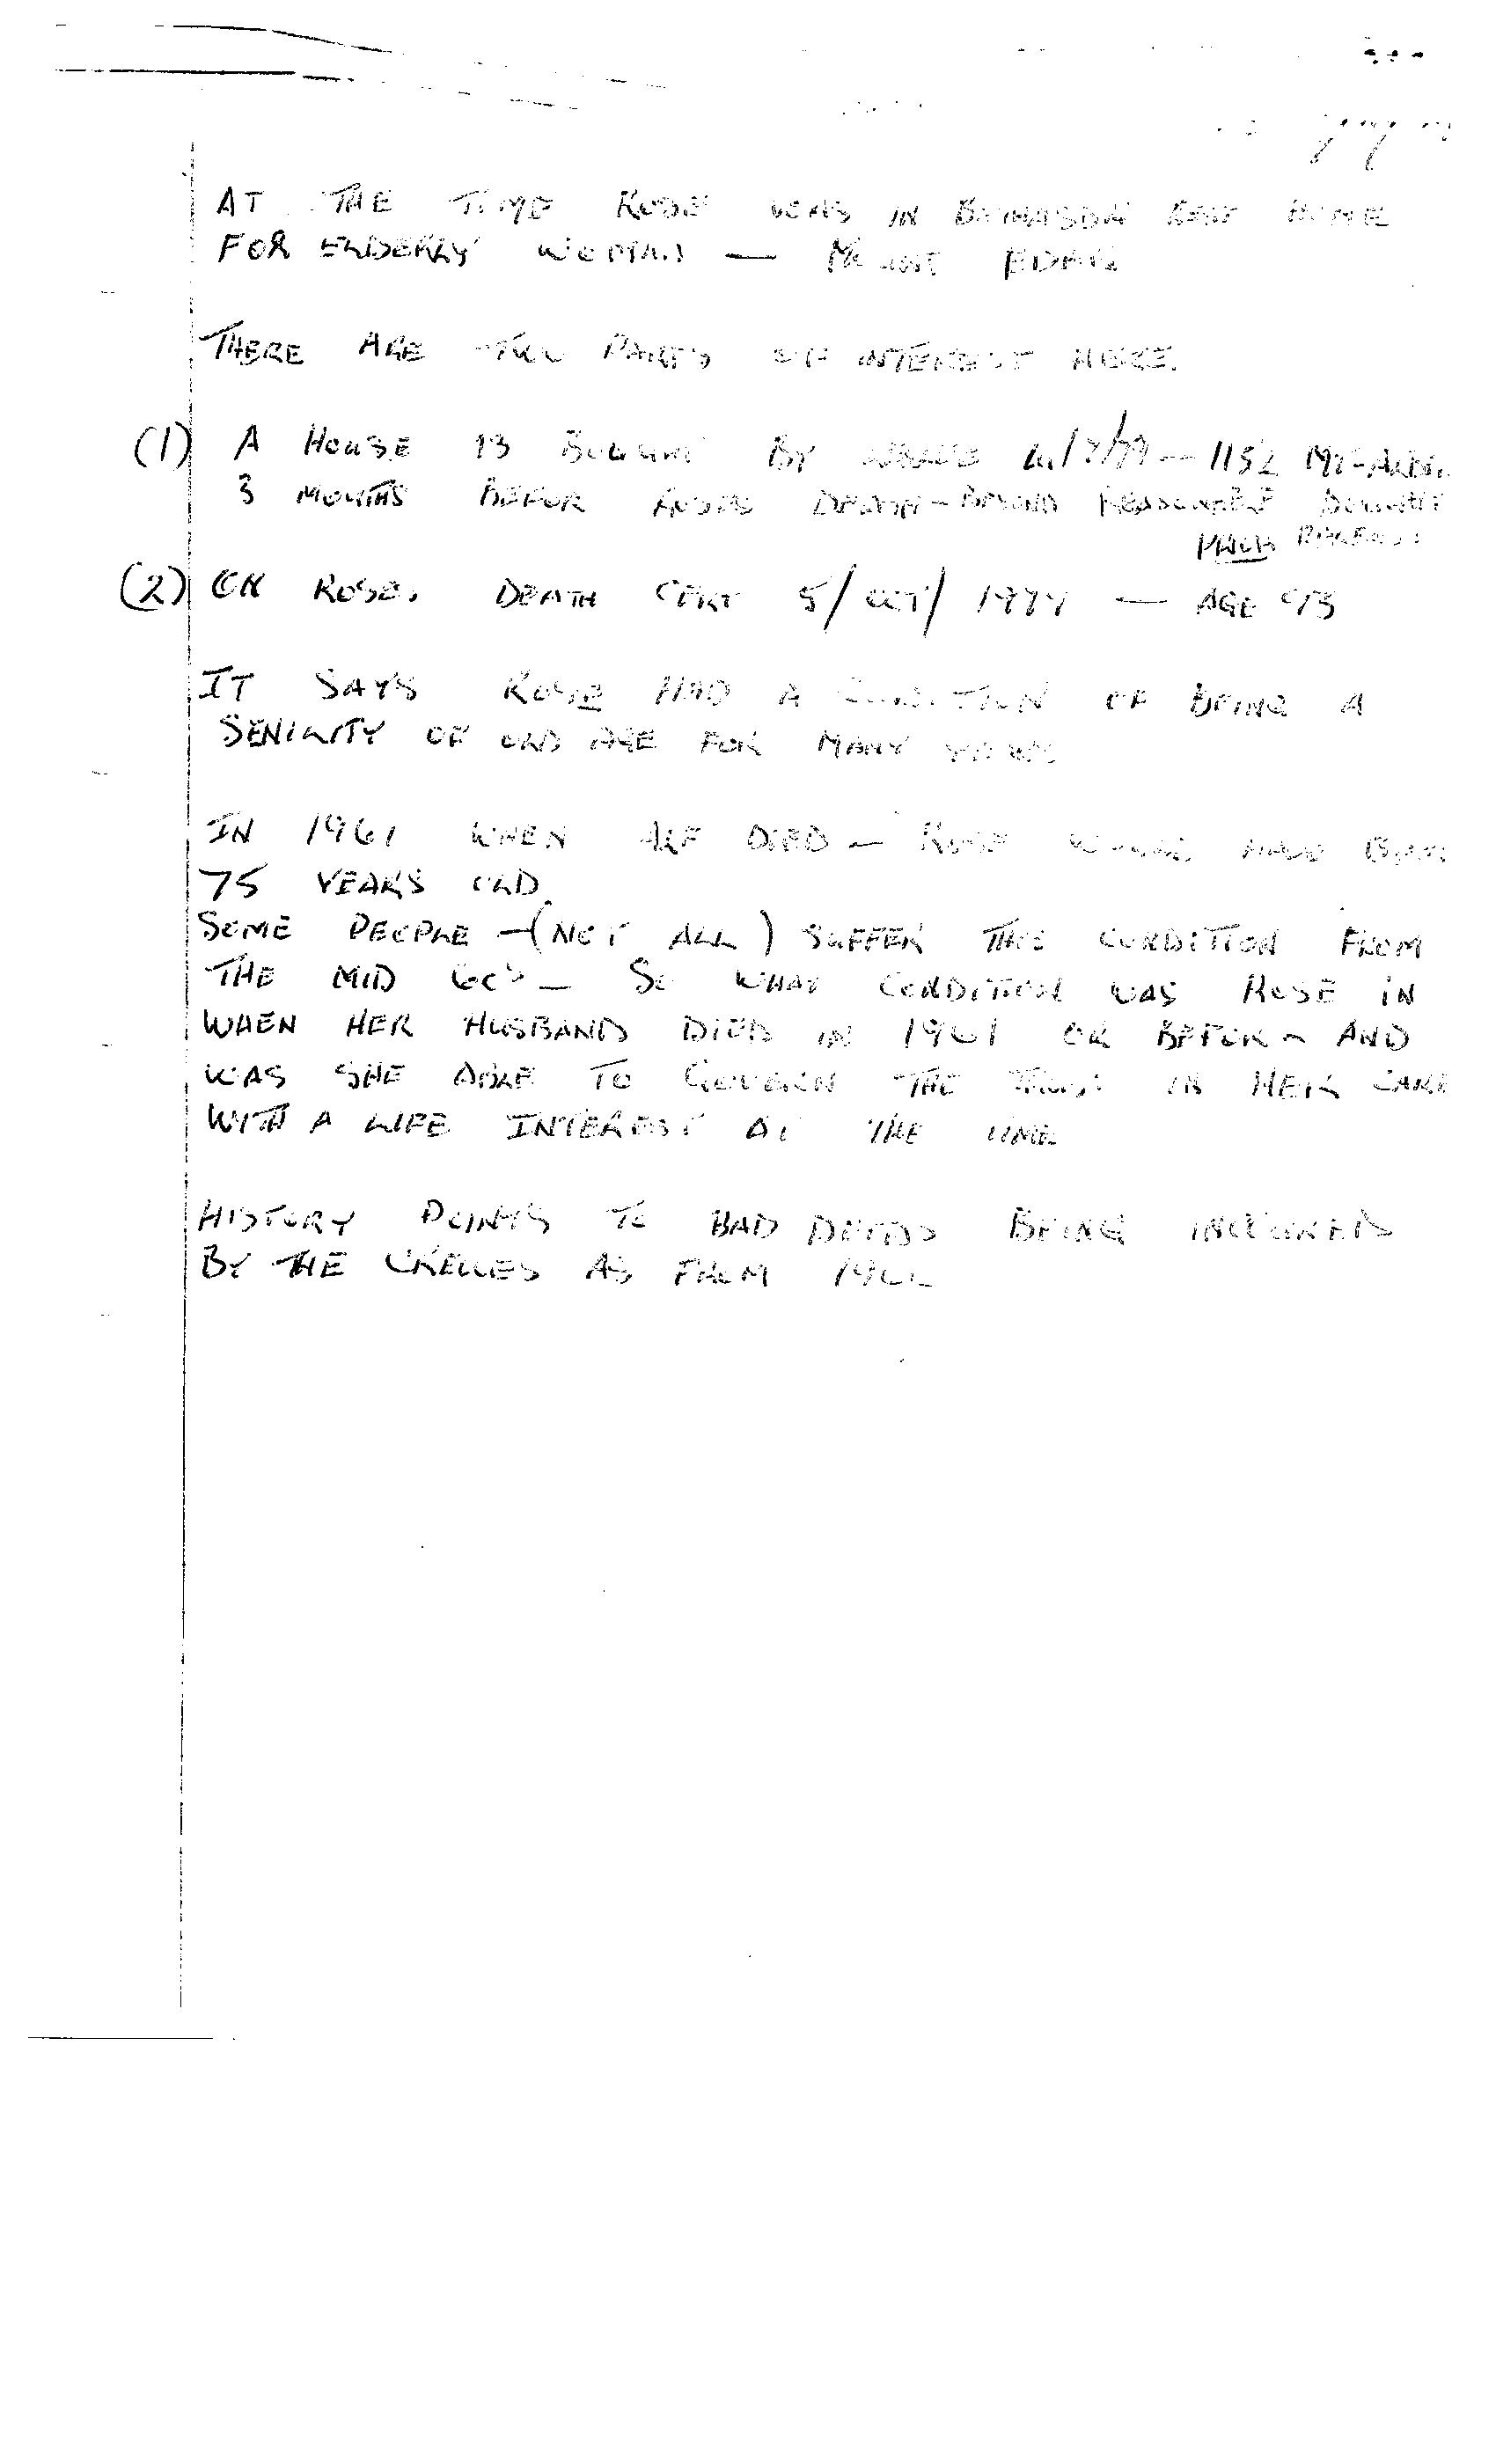 AT THE TIME ROSE WAS IN REST HOME
FOR ELDERLY WOMAN — MOUNT EDEN
THERE ARE TWO PARTS OF INTEREST HERE.
(1) A HOUSE IS BOUGHT BY /7/79 — 115
3 MONTHS BEFOR ROSES DEATH - BEYOND REASONABLE DOUBT
(2) ON ROSES DEATH CERT 5/OCT/1979 — AGE 93
IT SAYS ROSE HAD A CONDITION OF BEING A
SENILITY OF OLD AGE FOR MANY YEARS
IN 1961 WHEN ALF DIED — ROSE WOULD HAVE BEEN
75 YEARS OLD.
SOME PEOPLE - (NOT ALL) SUFFER THIS CONDITION FROM
THE MID 60s — SO WHAT CONDITION WAS ROSE IN
WHEN HER HUSBAND DIED IN 1961 OR BEFOR - AND
WAS SHE ABLE TO GOVERN THE TRUST IN HER CARE
WITH A LIFE INTEREST AT THE TIME
HISTORY POINTS TO BAD DEEDS BEING INCURRED
BY THE AS FROM